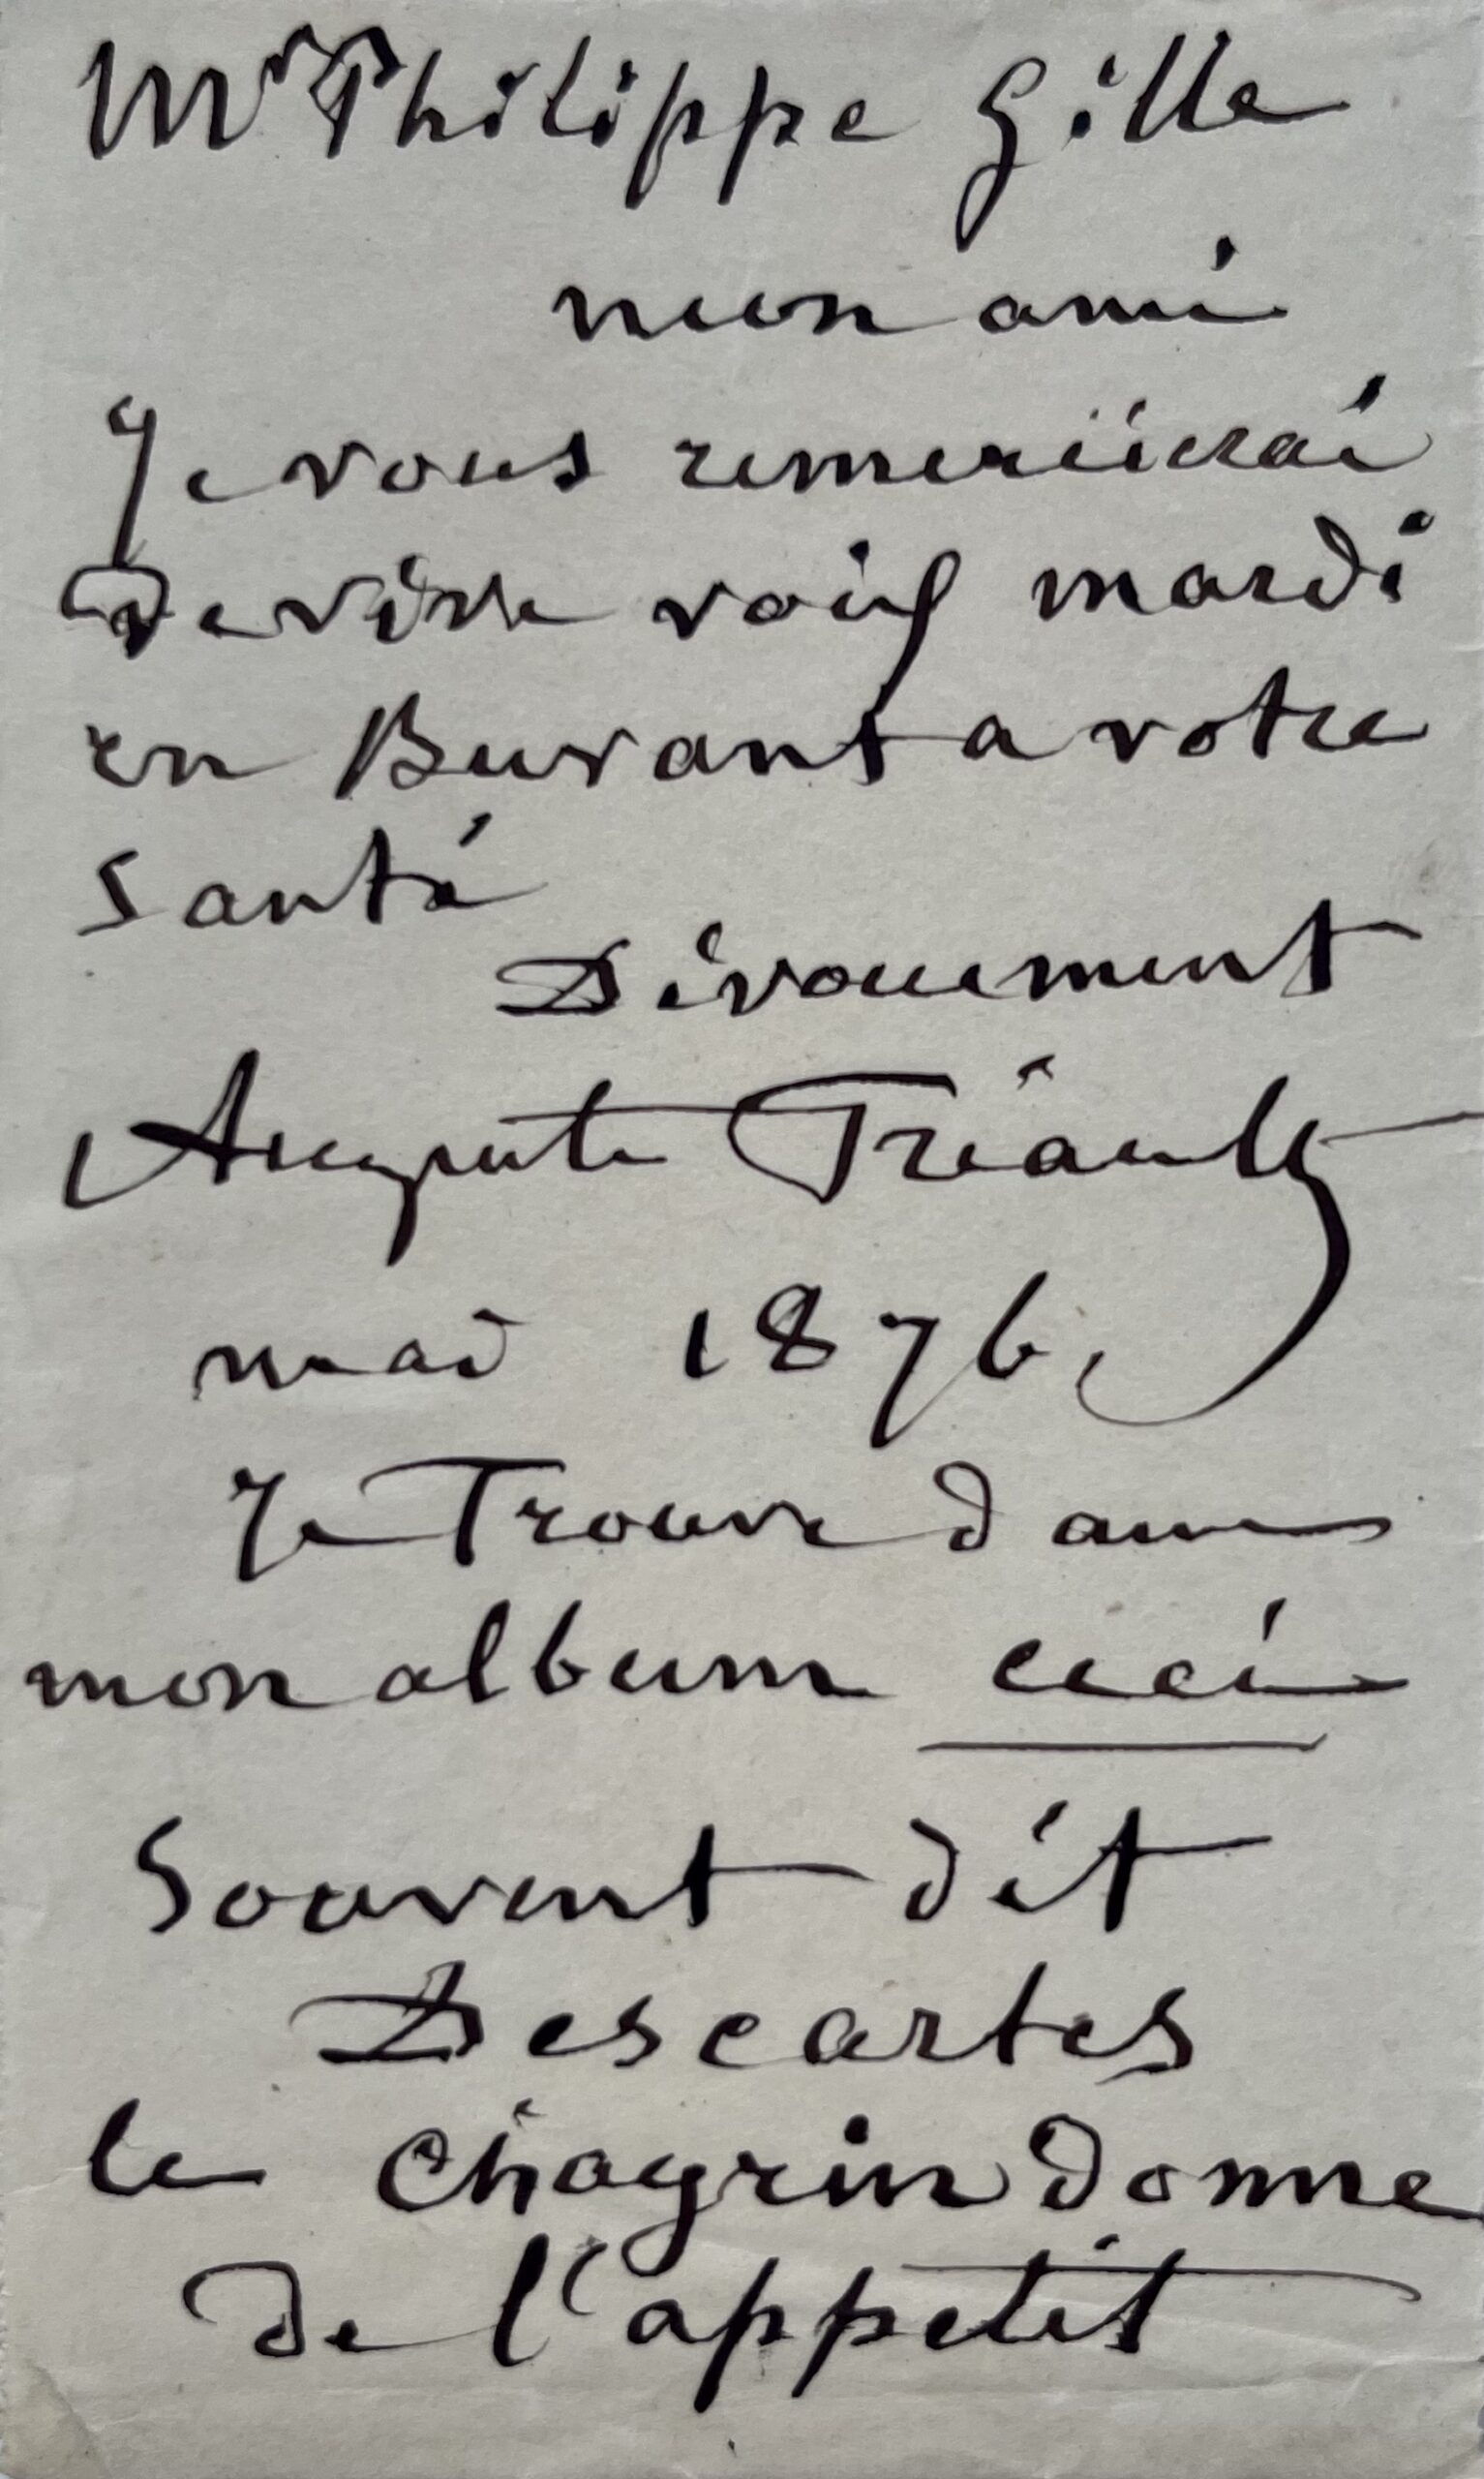 Mr Philippe Gille
mon ami
Je vous remercierai
De vive voix mardi
en Buvant a votre
santé
Dévouement
Auguste Préault
mai 1876
Je Trouve dans
mon album ceci
Souvent dit
Descartes
le Chagrin donne
de l'appetit